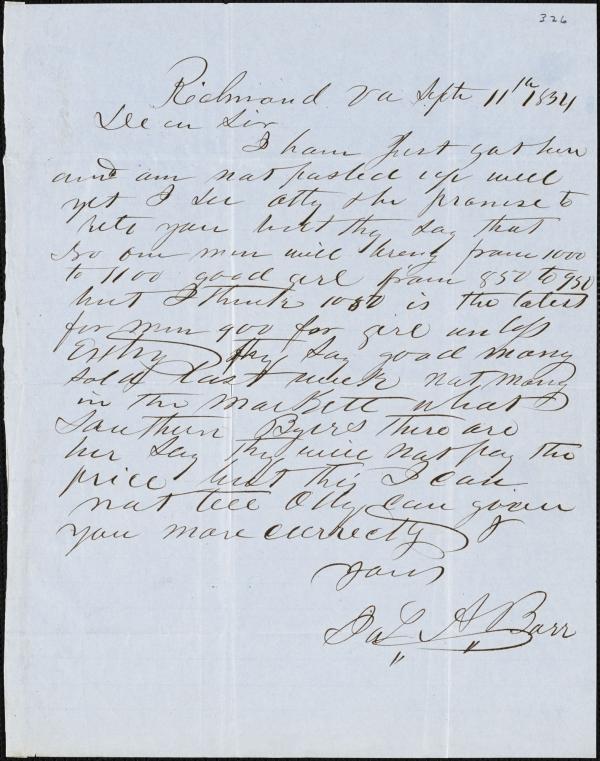 326
Richmond Va Sept 11th 1854
Dear Sir
I have Just got here
and am not posted up well
yet I see Otty & he promise to
rite you but thy say that
No one men will bring from 1000
to 1100 good girl from 850 to 950
but I think 1050 is the latest
for men 900 for girl unless
Extry thy say good many
sold last week not many
in the Markett what
Southern Byers there are
her say thy will not pay the
price but this I can
not tell Otty can given
you more currectly
yours
A Barr